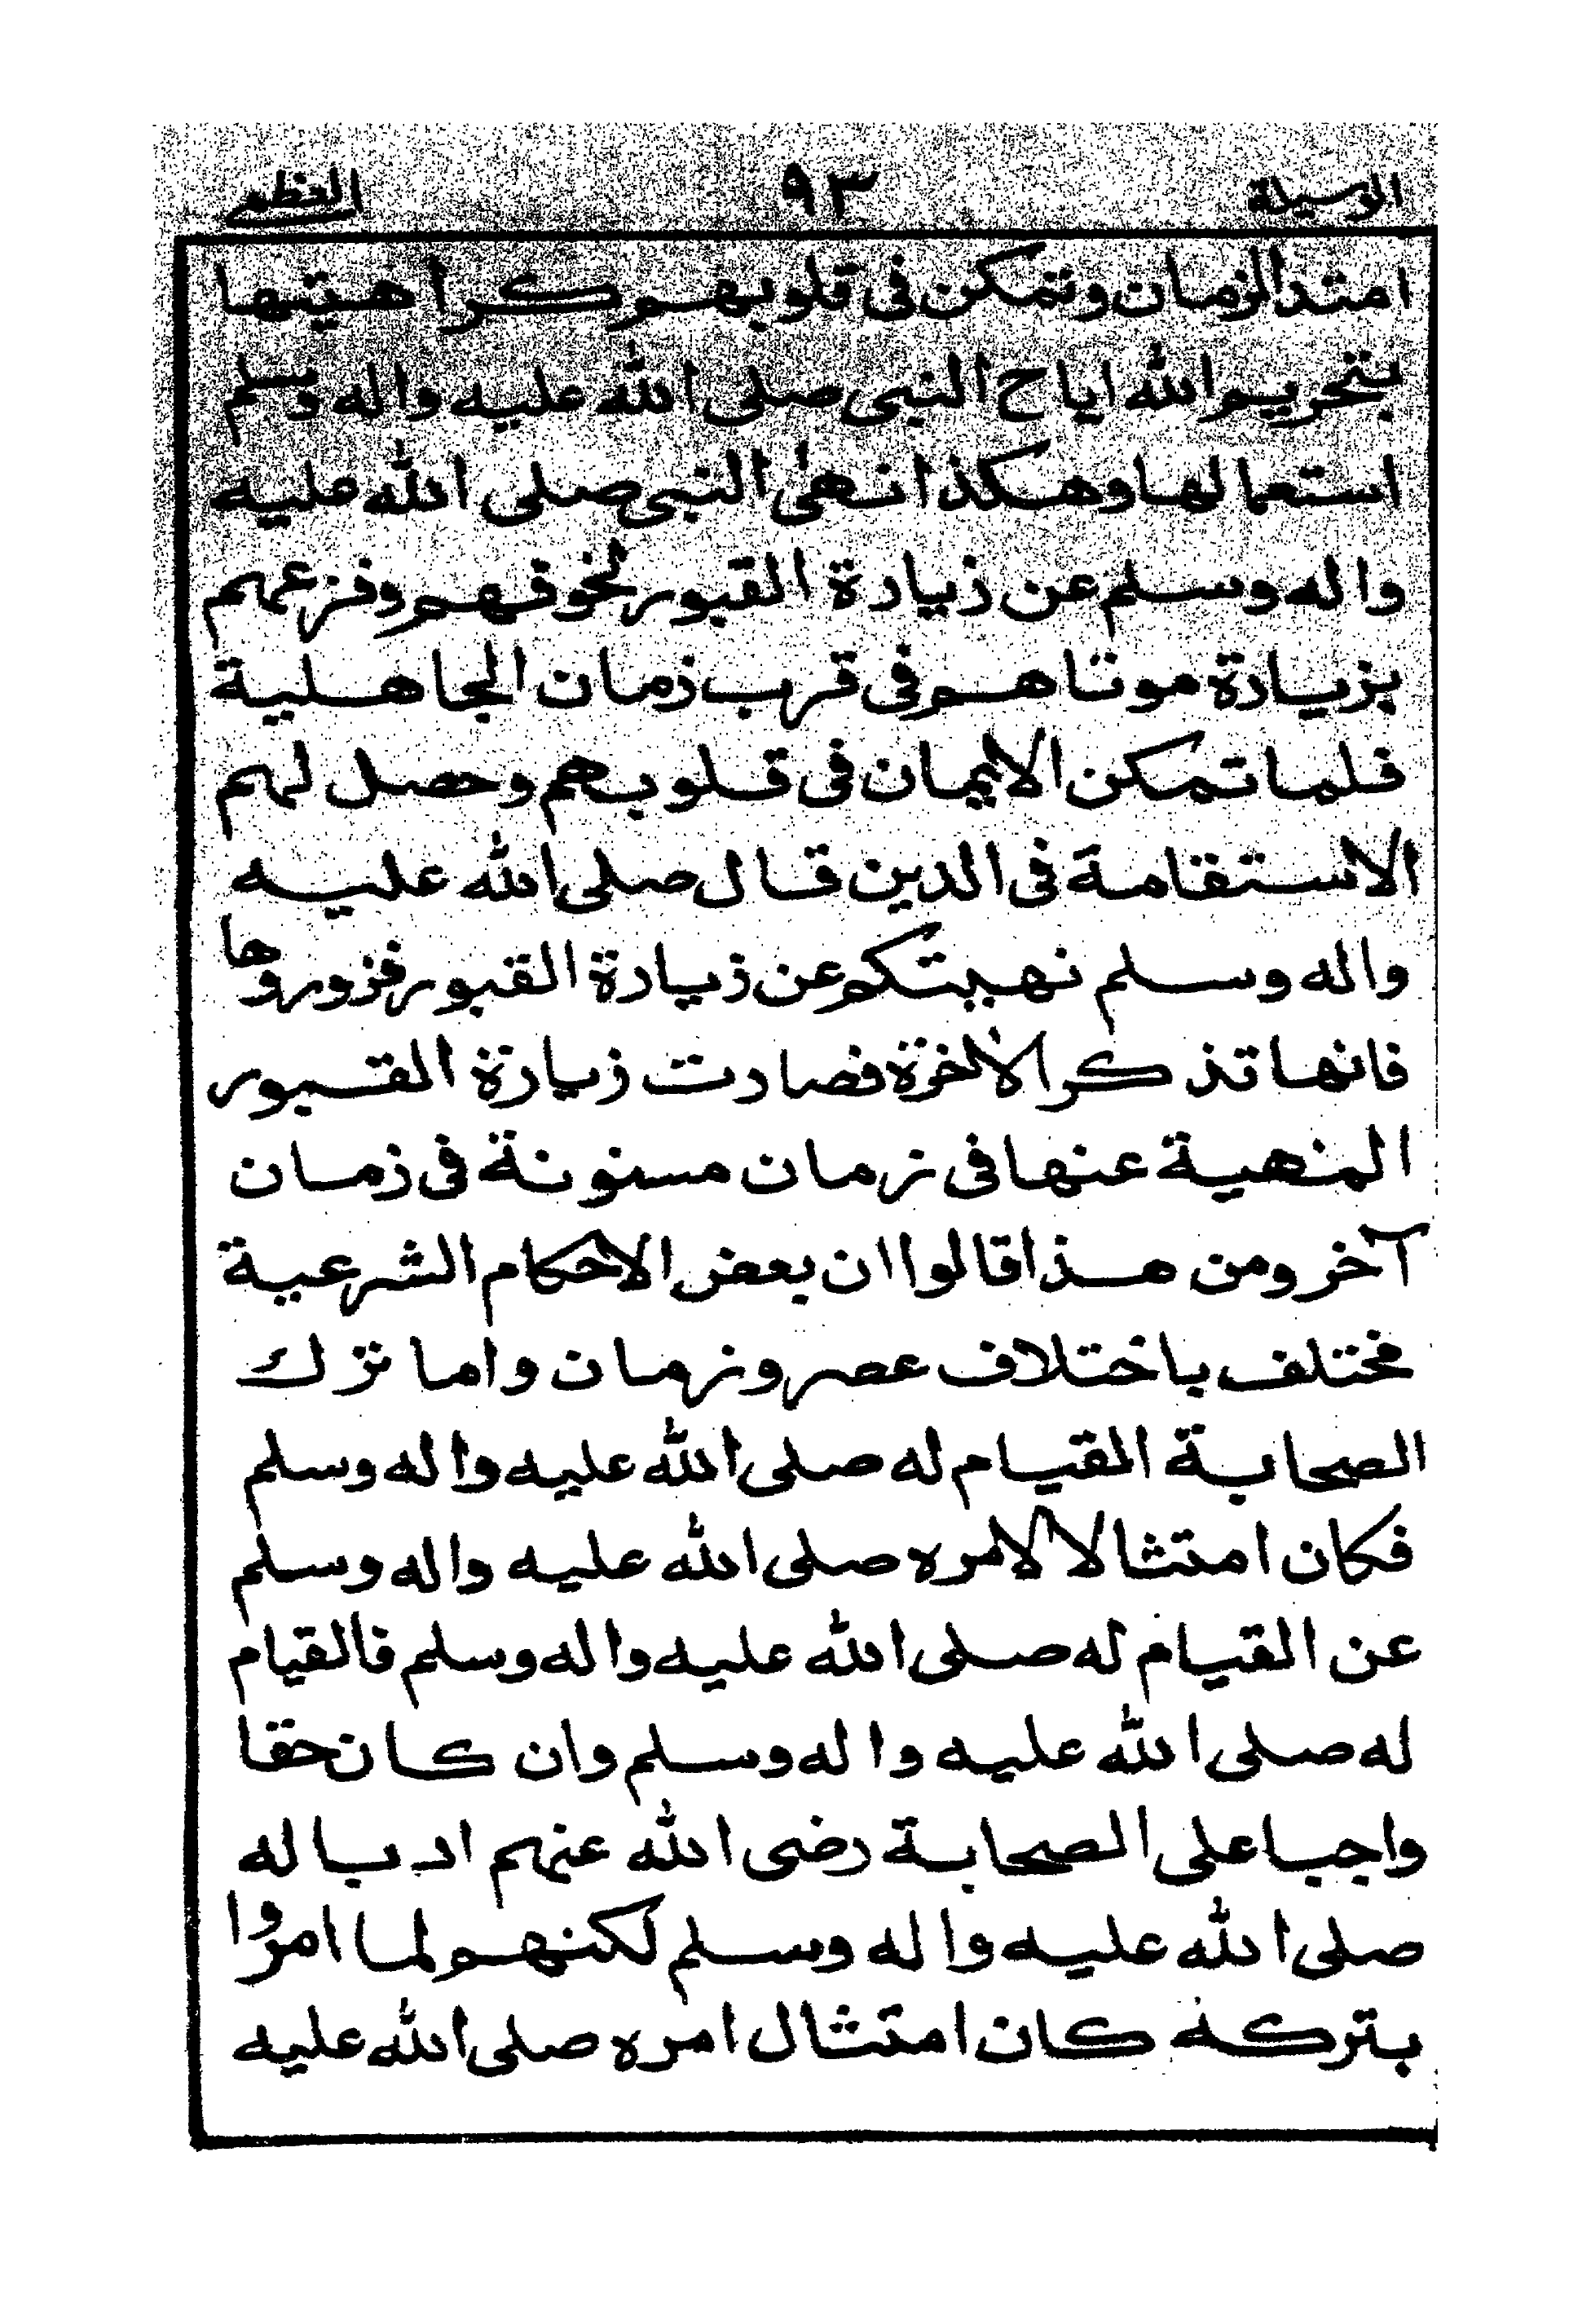 الوسيلة ٩٣ العظمى
امتد الزمان وتمكن فى قلوبهم كراهيتها
بتحريم الله اباح النبى صلى الله عليه واله وسلم
استعمالها وهكذا نهى النبى صلى الله عليه
واله وسلم عن زيارة القبور لخوفهم وفزعهم
بزيارة موتاهم فى قرب زمان الجاهلية
فلما تمكن الايمان فى قلوبهم وحصل لهم
الاستقامة فى الدين قال صلى الله عليه
واله وسلم نهيتكم عن زيارة القبور فزوروها
فانها تذكر الاخرة فصارت زيارة القبور
المنهية عنها فى زمان مسنونة فى زمان
آخر ومن هذا قالوا ان بعض الاحكام الشرعية
مختلف باختلاف عصر وزمان واما ترك
الصحابة القيام له صلى الله عليه واله وسلم
فكان امتثالا لامره صلى الله عليه واله وسلم
عن القيام له صلى الله عليه واله وسلم فالقيام
له صلى الله عليه واله وسلم وان كان حقا
واجبا على الصحابة رضى الله عنهم ادبا له
صلى الله عليه واله وسلم لكنهم لما امروا
بتركه كان امتثال امره صلى الله عليه